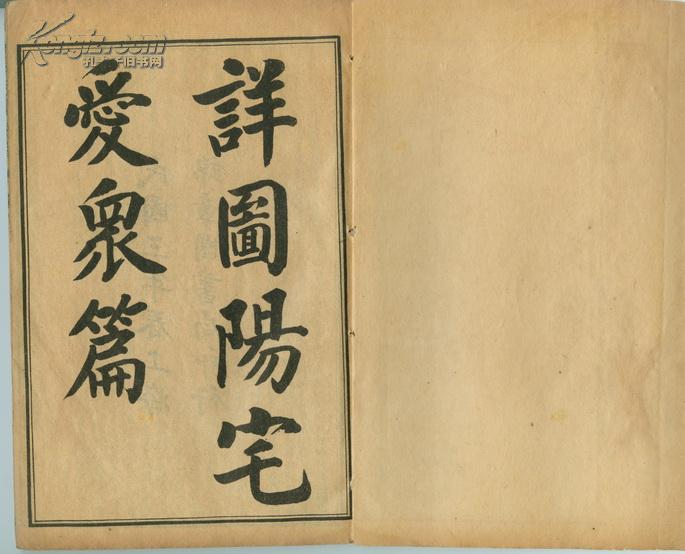 詳圖陽宅
愛眾篇
Kongfz.com
孔夫子旧书网